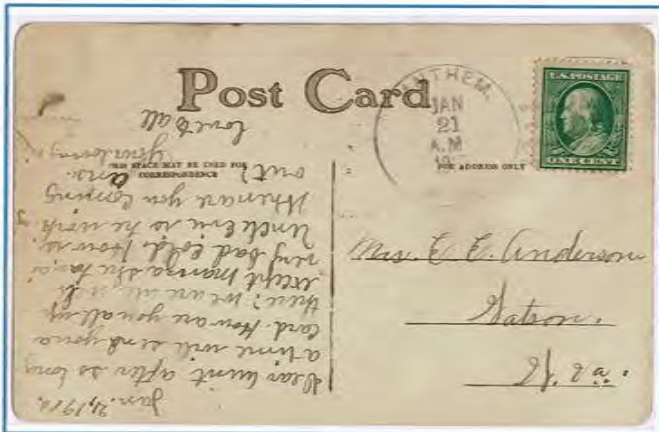 Post Card
THIS SPACE MAY BE USED FOR
CORRESPONDENCE
FOR ADDRESS ONLY
ANTHEM.
JAN
21
A.M
U.S. POSTAGE
ONE CENT
Mrs. E. E. Anderson
W. Va.
Jan. 21, 19
Dear Aunt after so long
a time will send you a
card. How are you all up
there? We are all
except mamma she has a
very bad cold. How is
Uncle is he
When are you coming
out? ans.
Your loving
Love to all